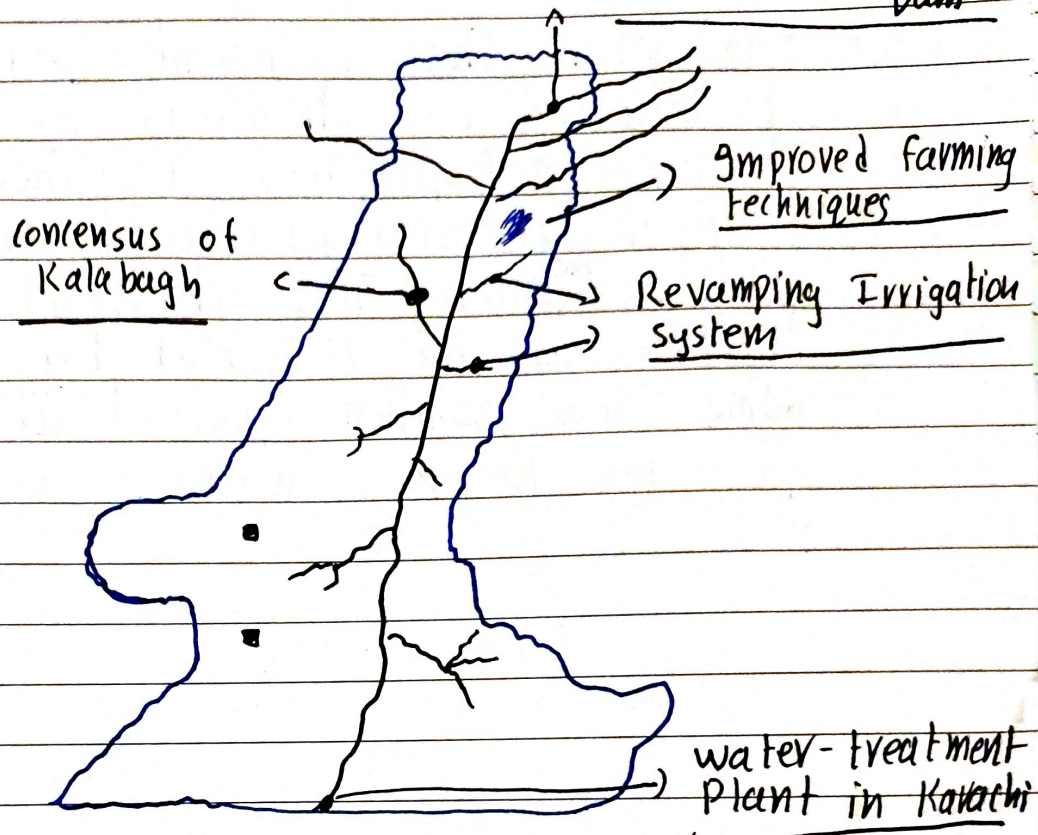 Improved farming
techniques
concensus of
Kalabagh
Revamping Irrigation
system
water-treatment
Plant in Karachi